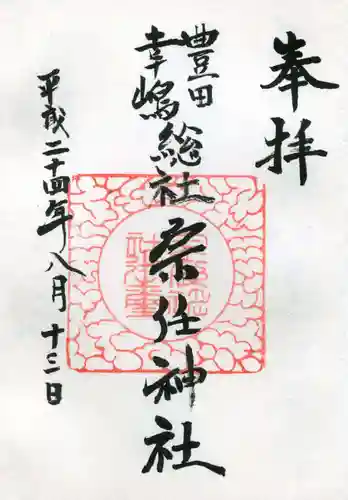 奉拝
豊田
幸嶋総社宗任神社
平成二十四年八月十三日